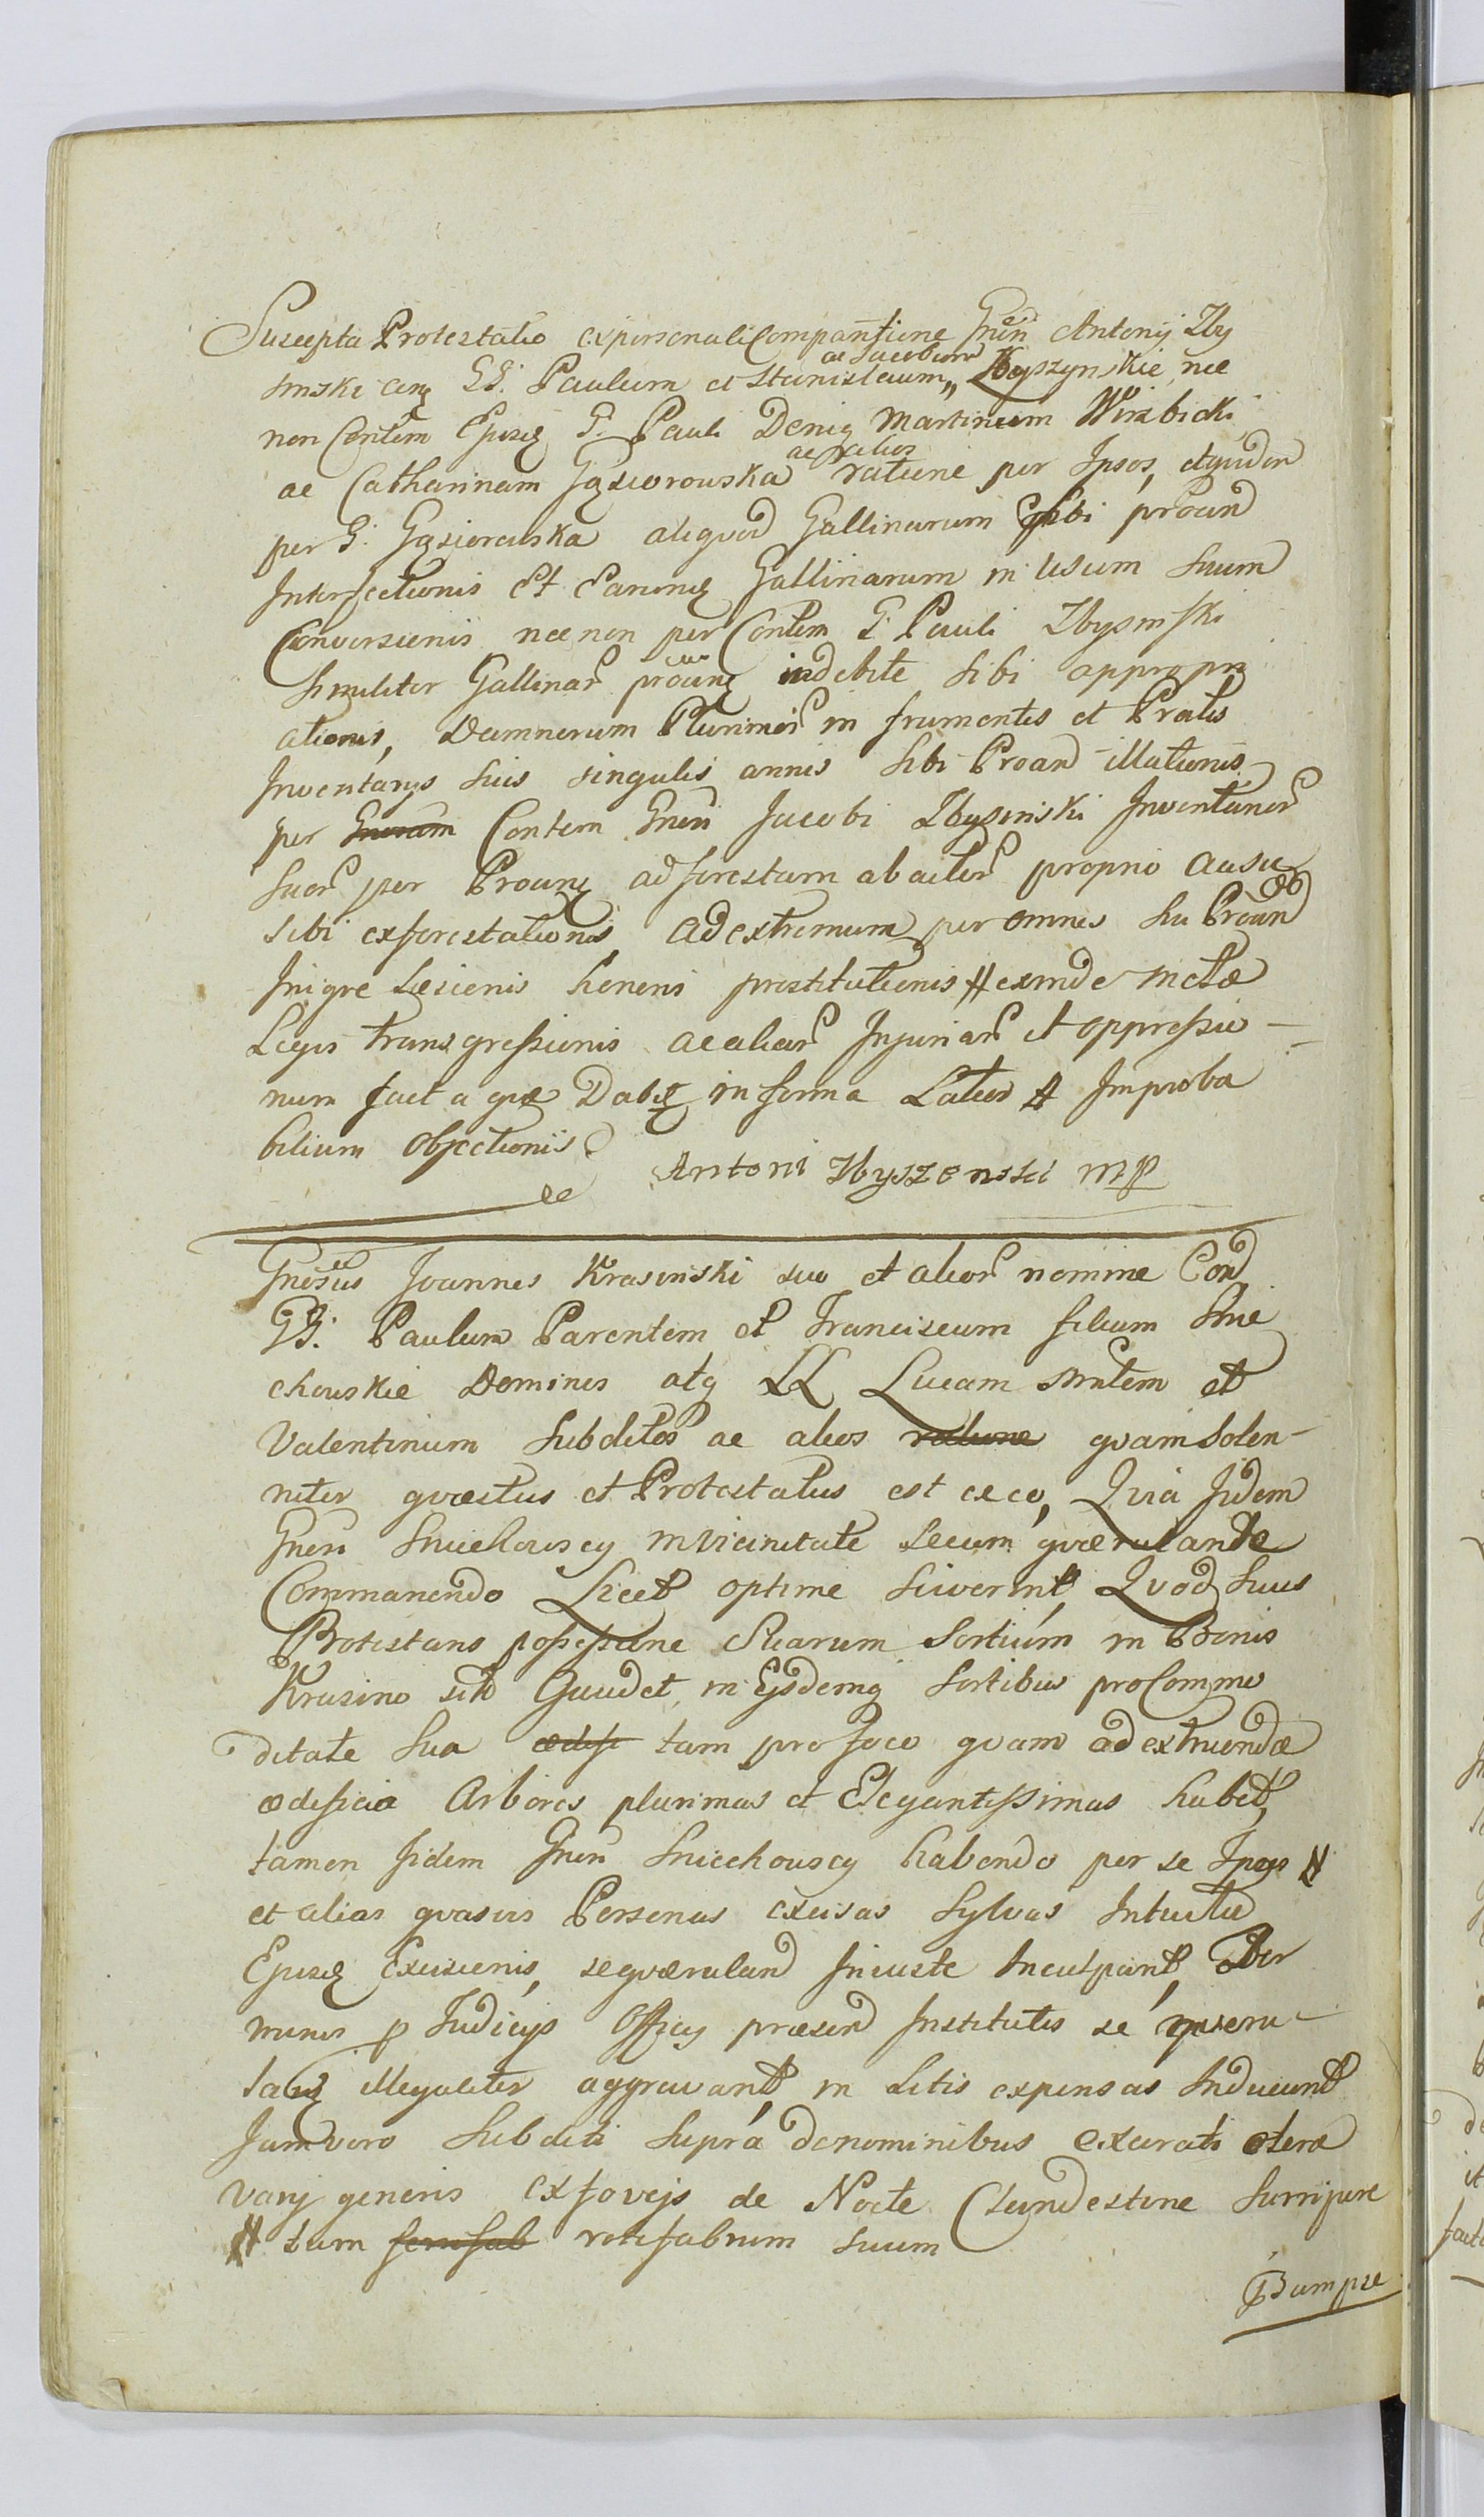 Suscepta Protestatio ex personali Comparitione Gnēri Antonij Zby
sinski conq GG. Paulum et Stanislaum ac Jacobum Zbyszynskie nec
non Contem Ejusq G. Pauli Deniq Martinum Wirzbicki
ac Catharinam Gąsiorowska ac alios ratione per Ipsos, et quidem
per G. Gąsiorowska aliquod Gallinarum sibi proand
Interfectionis Et Earumq Gallinarum in Usum Suum
Conversionis nec non per Contem G. Pauli Zbysinski
similiter Gallinar indebite sibi appropri
ationis, Damnorum Plurimor in frumentis et Pratis
Inventarys suis singulis annis sibi Proand illationis
per Gnēram Contem Gnēri Jacobi Zbysinski Inventarior
suor per Proanq ad forestam abactor proprio ausu
sibi exforestationis ad extremum per omnes su Proand
Inique Læsionis honoris prostitutionis # exinde metæ
Legis transgressionis ac aliar Injuriar et oppressio-
num fact a quæ Dabq in forma Latior # Improba
bilium Objectionis
Antoni Zbyszenski mp
Gnēsus Joannes Krasinski suo et alior nomine Cond
GG. Paulum Parentem et Franciscum filium Snie
chouskie Dominos atq LL Lucam et
Valentinum Subditos ac alios ratione quam Solen-
niter quæstus et Protestatus est ex eo, Quia Jidem
Gnēri Sniechouscy in vicinitate secum quærulante
Commanendo Licet optime sciverint, Quod suus
Protestans possessione suarum Sortium in Bonis
Krasino sit Gaudet, in Ejsdemq Sortibus pro Commo
ditate sua ædifi tam pro foco quam ad extruendæ
ædificia Arbores plurimas et Elegantissimas habet,
tamen Jidem Gnēri Sniechouscy habendo per se Ipsos #
et alias quasvis Personas excisas Sylvas Intuitu
Ejusq Excisionis, se quæruland Iniuste Inculpant, Ter
minis p Judicys Officy præsend Institutis se quæru-
lanq illegaliter aggravant, in Litis expensas Inducunt
Jam vero Subditi supra denominibus exarati olera
varij generis ex fovejs de Nocte Clandestine surripere
# tum ferrifab rotifabrum suum